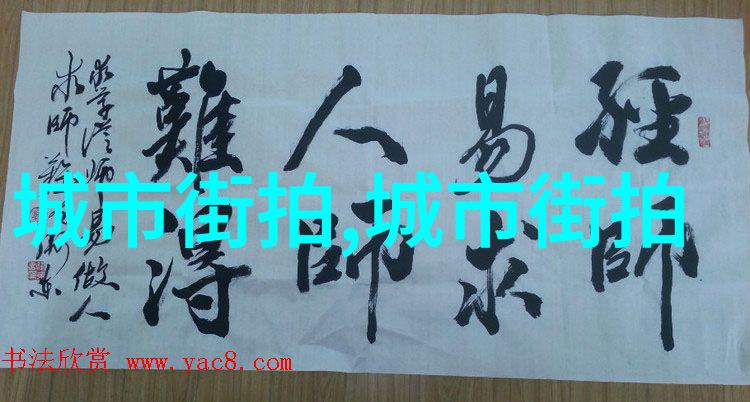 經師
易求
人師
難得
做人
求師
城市街拍,城市街拍
书法欣赏 www.yac8.com